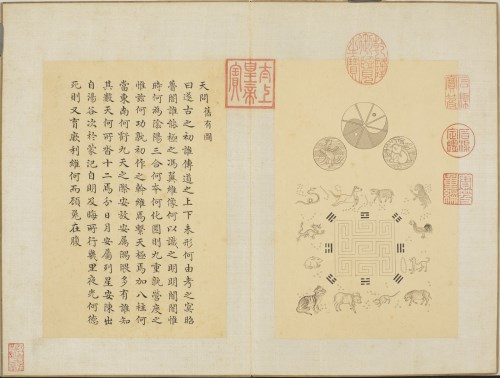 天問 舊有圖
曰遂古之初誰傳道之上下未形何由考之冥昭
瞢闇誰能極之馮翼維像何以識之明明闇闇惟
時何為陰陽三合何本何化圜則九重孰營度之
惟茲何功孰初作之斡維焉繫天極焉加八柱何
當東南何虧九天之際安放安屬隅隈多有誰知
其數天何所沓十二焉分日月安屬列星安陳出
自湯谷次於蒙汜自明及晦所行幾里夜光何德
死則又育厥利維何而顧菟在腹
太上皇帝之寶